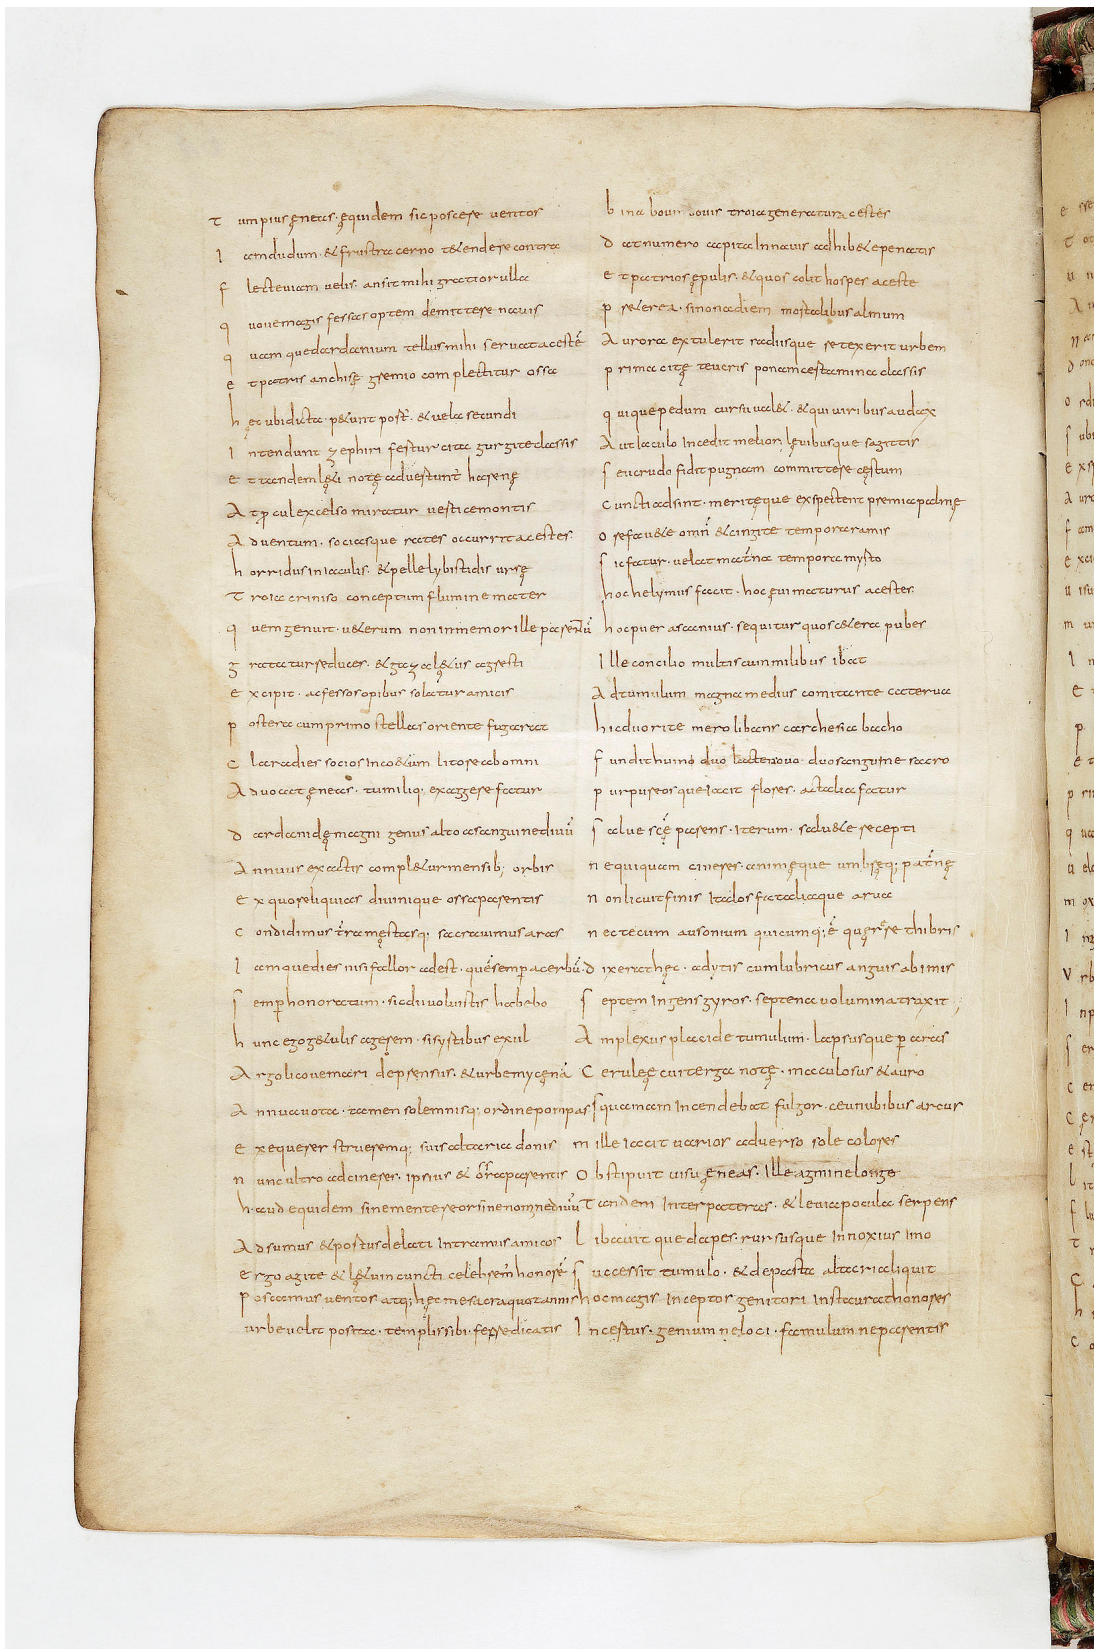 Tum pius ęneas· ęquidem sic poscere ventos
Iamdudum· & frustra cerno t&endere contra
flecte viam velis· an sit mihi gratior ulla
quo ue magis fessas optem demittere navis
quam que dardanium tellus mihi servat acestē
et patris anchisę gremio complectitur ossa
hęc ubi dicta· p&unt post̄· & vela secundi
Intendunt zephiri fertur cita gurgite classis
et tandem lę&i notę advertunt̄ harenę
At ꝓcul excelso miratur vertice montis
Adventum· sociasque rates occurrit acestes
horridus in iaculis· & pelle lybistidis ursę
Troia criniso conceptum flumine mater
quem genuit· u&erum non inmemor ille parentū
gratatur reduces· & gaza lę&us agresti
excipit· ac fessos opibus solatur amicis
postera cum primo stellas oriente fugarat
Clara dies socios in co&um litore ab omni
Advocat ęneas· tumiliq; ex aggere fatur
dardanidę magni genus alto a sanguine divū
Annuus exactis compl&ur mensib; orbis
ex quo reliquias divinique ossa parentis
condidimus tr̄ra męstasq; sacravimus aras
Iamque dies nisi fallor adest· quē semꝑ acerbū·
semꝑ honoratum· sic dii voluistis habebo
hunc ego g&ulis agerem· si syrtibus exul
Argolicove mari deprensus· & urbe mycęnā
Annua vota· tamen solemnisq; ordine pompas
exequerer strueremq; suis altaria donis
nunc ultro ad cineres· ipsius & ossa parentis
haud equidem sine mente reor sine nomne divū
Adsumus & portus delati intramus amicos
ergo agite & lę&um cuncti celebrem̄ honorē
poscamus ventos atq; hęc me sacra quotannis
urbe velit posita· templis sibi· ferre dicatis
bina boum vobis troia generatura cestes
dat numero capita in navis adhib&e penatis
et patrios ępulis· & quos colit hospes aceste
pr&erea· si nona diem mortalibus almum
Aurora extulerit radiisque retexerit urbem
prima citę teucris ponam certamina classis
quique pedum cursu val&· & qui viribus audax
Aut iaculo incedit melior lęvibusque sagittis
seu crudo fidit pugnam committere cęstum
cuncti adsint· meritęque exspectent premia palmę
ore fav&e omn̄ & cingite tempora ramis
sic fatur· velat mat̄na tempora myrto
hoc helymus facit· hoc ęvi maturus acestes
hoc puer ascanius· sequitur quos c&era pubes
Ille concilio multis cum milibus ibat
Ad tumulum magna medius comitante caterva
hic duo rite mero libans carchesia bacho
fundit humo duo lacte novo· duo sanguine sacro
purpureosque iacit flores· ac talia fatur
salve scē parens· iterum· salv&e recepti
nequiquam cineres· animęque umbręq; pat̄nę
non licuit finis italos fataliaque arva
nec tecum ausonium quicumq; ē quęrere thibris
dixerat hęc· adytis cum lubricus anguis ab imis
septem ingens gyros· septena volumina traxit
Amplexus placide tumulum· lapsusque ꝑ aras
Cerulęę cui terga notę· maculosus & auro
squamam incendebat fulgor· ceu nubibus arcus
mille iacit varios adverso sole colores
Obstipuit visu ęneas· Ille agmine longo
Tandem inter pateras· & levia pocula serpens
libavit que dapes· rursusque innoxius imo
successit tumulo· & depasta altaria liquit
hoc magis inceptos genitori instaurat honores
Incertus· geniumne loci· famulumne parentis